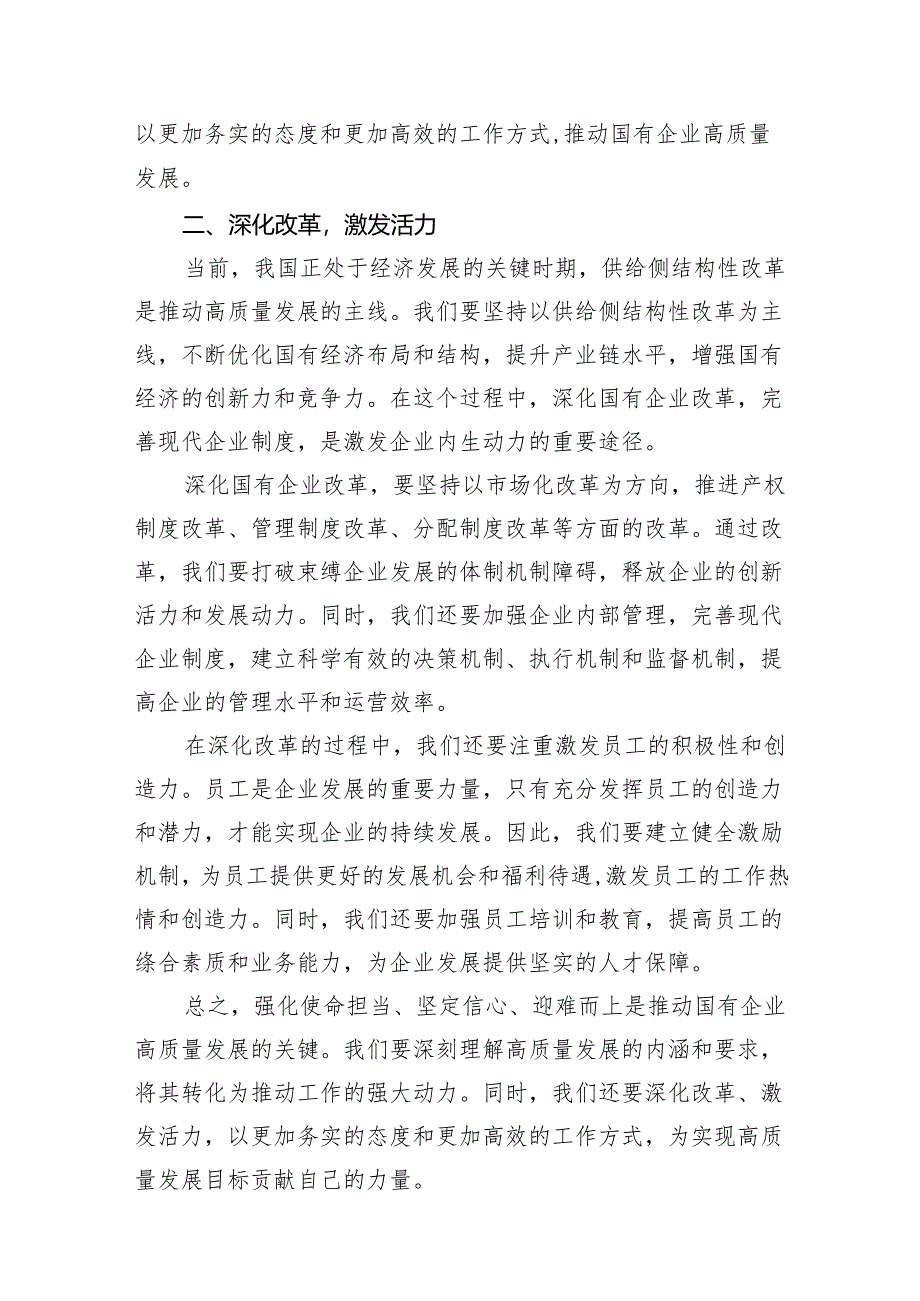 以更加务实的态度和更加高效的工作方式,推动国有企业高质量
发展。
二、深化改革，激发活力
当前，我国正处于经济发展的关键时期，供给侧结构性改革
是推动高质量发展的主线。我们要坚持以供给侧结构性改革为主
线，不断优化国有经济布局和结构，提升产业链水平，增强国有
经济的创新力和竞争力。在这个过程中，深化国有企业改革，完
善现代企业制度，是激发企业内生动力的重要途径。
深化国有企业改革，要坚持以市场化改革为方向，推进产权
制度改革、管理制度改革、分配制度改革等方面的改革。通过改
革，我们要打破束缚企业发展的体制机制障碍，释放企业的创新
活力和发展动力。同时，我们还要加强企业内部管理，完善现代
企业制度，建立科学有效的决策机制、执行机制和监督机制，提
高企业的管理水平和运营效率。
在深化改革的过程中，我们还要注重激发员工的积极性和创
造力。员工是企业发展的重要力量，只有充分发挥员工的创造力
和潜力，才能实现企业的持续发展。因此，我们要建立健全激励
机制，为员工提供更好的发展机会和福利待遇,激发员工的工作热
情和创造力。同时，我们还要加强员工培训和教育，提高员工的
绦合素质和业务能力，为企业发展提供坚实的人才保障。
总之，强化使命担当、坚定信心、迎难而上是推动国有企业
高质量发展的关键。我们要深刻理解高质量发展的内涵和要求，
将其转化为推动工作的强大动力。同时，我们还要深化改革、激
发活力，以更加务实的态度和更加高效的工作方式，为实现高质
量发展目标贡献自己的力量。